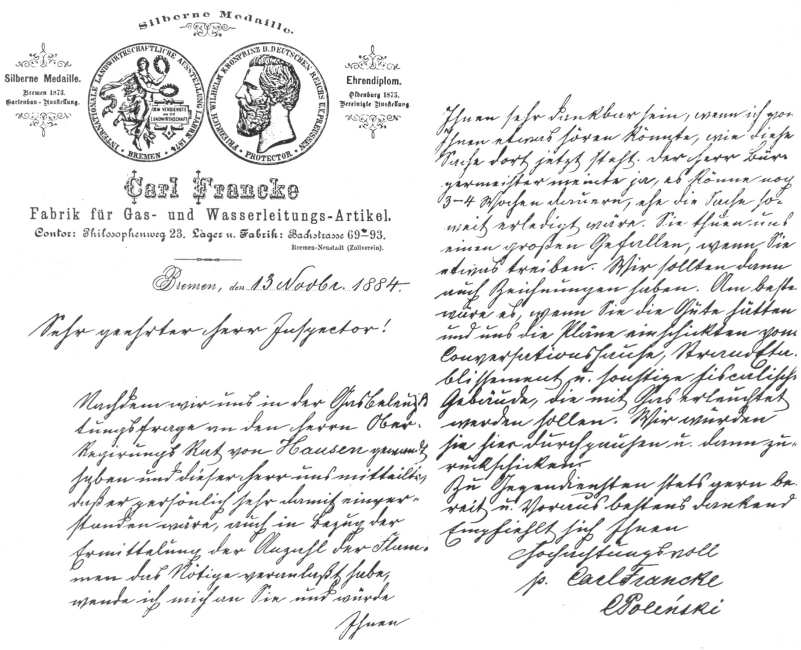 Silberne Medaille.
Silberne Medaille.
Bremen 1873.
Gartenbau-Ausstellung.
INTERNATIONALE LANDWIRTHSCHAFTLICHE AUSSTELLUNG I. JAHRE 1874
DEM VERDIENSTE
UM DIE
LANDWIRTHSCHAFT
• BREMEN •
FRIEDRICH WILHELM KRONPRINZ D. DEUTSCHEN REICHS U. V. PREUSSEN
• PROTECTOR •
Ehrendiplom.
Oldenburg 1873.
Vereinigte Ausstellung
Carl Francke
Fabrik für Gas- und Wasserleitungs-Artikel.
Contor: Philosophenweg 23. Lager u. Fabrik: Bachstrasse 69-93.
Bremen-Neustadt (Zollverein).
Bremen, den 13 Novbr. 1884.
Sehr geehrter Herr Inspector!
Nachdem wir uns in der Gasbeleuch-
tungsfrage an den Herrn Ober-
Regierungs Rat von Hausen gewandt
haben und dieser Herr uns mitteilte,
daß er persönlich sehr damit einver-
standen wäre, auch in Bezug der
Ermittelung der Anzahl der Flam-
men das Nötige veranlaßt habe,
wende ich mich an Sie und würde
Ihnen
Ihnen sehr dankbar sein, wenn ich von
Ihnen etwas hören könnte, wie diese
Sache dort jetzt steht. Der Herr Bür-
germeister meinte ja, es könne noch
3-4 Wochen dauern, ehe die Sache so-
weit erledigt wäre. Sie thuen uns
einen großen Gefallen, wenn Sie
etwas treiben. Wir sollten dann
auch Zeichnungen haben. Am beste
wäre es, wenn Sie die Güte hätten
und uns die Pläne einschickten vom
Conversationshause, Strandeta-
blissement u. sonstige fiscalische
Gebäude, die mit Gas erleuchtet
werden sollen. Wir würden
sie hier durchpausen u. dann zu-
rückschicken.
Zu Gegendiensten stets gern be-
reit u. Voraus bestens dankend
Empfiehlt sich Ihnen
Hochachtungsvoll
p. Carl Francke
C Poleński